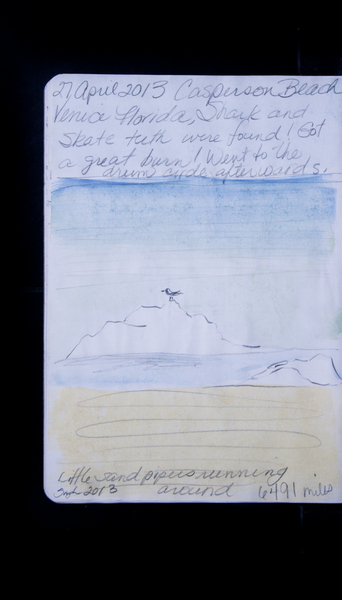 27 April 2013 Casperson Beach
Venice Florida, Shark and
Skate teeth were found! Got
a great burn! Went to the
drum circle afterwards.
Little sand pipers running
2013 around 6491 miles